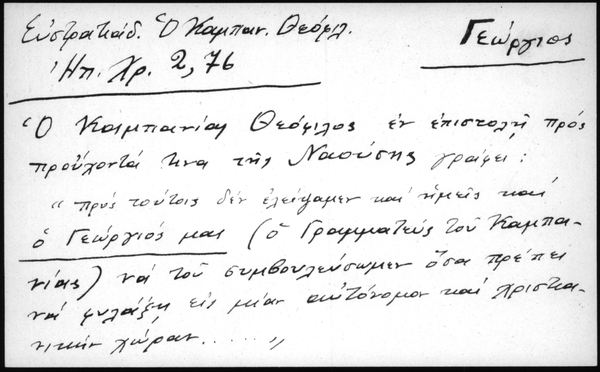 Εὐστρατιάδ. Ὁ Καμπαν. Θεόφιλ.
Γεώργιος
Ἠπ. Χρ. 2, 76
Ὁ Καμπανίας Θεόφιλος ἐν ἐπιστολῇ πρός
προὔχοντά τινα τῆς Ναούσης γράφει:
"πρός τούτοις δέν ἐλείψαμεν καί ἡμεῖς καί
ὁ Γεώργιός μας (ὁ Γραμματεύς τοῦ Καμπα-
νίας) νά τοῦ συμβουλεύσωμεν ὅσα πρέπει
νά φυλάξῃ εἰς μίαν αὐτόνομον καί χριστια-
νικήν χώραν......."